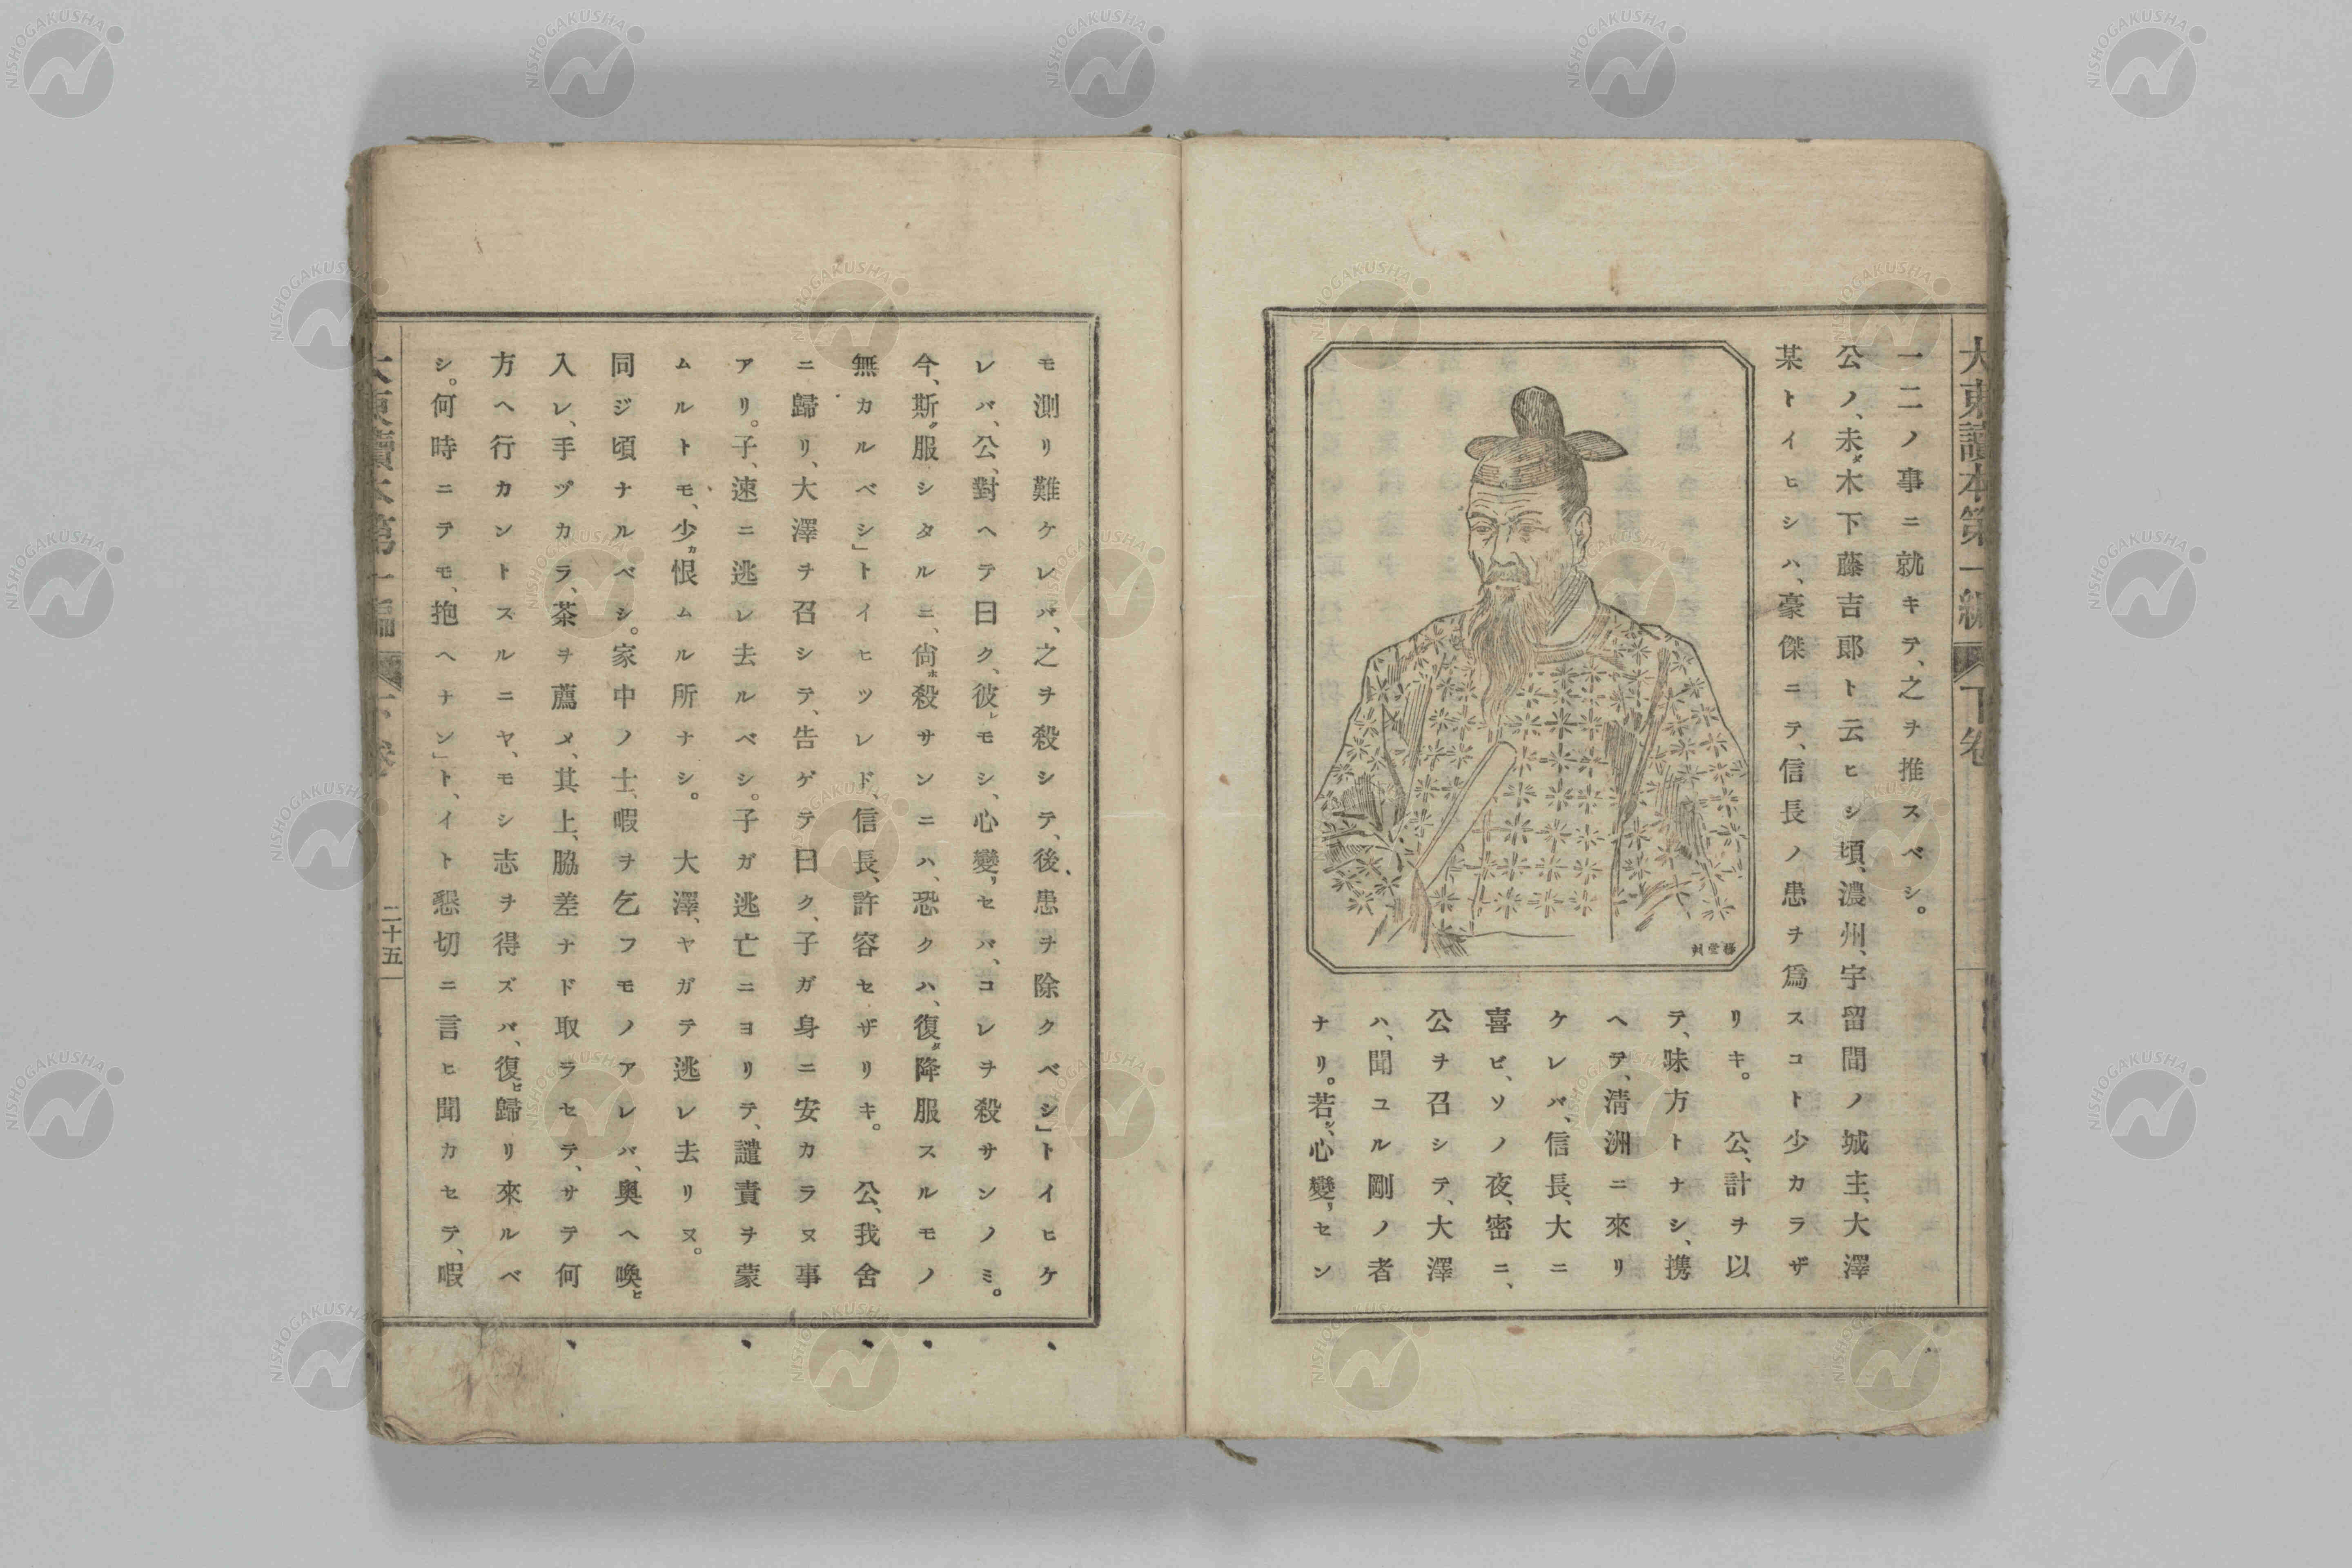 大東讀本第一編 下卷
一二ノ事ニ就キテ、之ヲ推スベシ。
公ノ、未ダ木下藤吉郎ト云ヒシ頃、濃州、宇留間ノ城主、大澤
某トイヒシハ、豪傑ニテ、信長ノ患ヲ爲スコト少カラザ
リキ。公、計ヲ以
テ、味方トナシ、携
ヘテ、淸洲ニ來リ
ケレバ、信長、大ニ
喜ビ、ソノ夜、密ニ、
公ヲ召シテ、大澤
ハ、聞ユル剛ノ者
ナリ。若シ、心變リセン
モ測リ難ケレバ、之ヲ殺シテ、後患ヲ除クベシ」トイヒケ
レバ、公、對ヘテ曰ク、彼レモシ、心變リセバ、コレヲ殺サンノミ。
今、斯ク服シタルニ、尙ホ殺サンニハ、恐クハ、復タ降服スルモノ
無カルベシ」トイヒツレド、信長、許容セザリキ。公、我舍
ニ歸リ、大澤ヲ召シテ、告ゲテ曰ク、子ガ身ニ安カラヌ事
アリ。子、速ニ逃レ去ルベシ。子ガ逃亡ニヨリテ、譴責ヲ蒙
ムルトモ、少カ恨ムル所ナシ。大澤、ヤガテ逃レ去リヌ。
同ジ頃ナルベシ。家中ノ士、暇ヲ乞フモノアレバ、奧ヘ喚ビ
入レ、手ヅカラ、茶ヲ薦メ、其上、脇差ナド取ラセテ、サテ何
方ヘ行カントスルニヤ、モシ志ヲ得ズバ、復ビ歸リ來ルベ
シ。何時ニテモ、抱ヘナン」ト、イト懇切ニ言ヒ聞カセテ、暇
大東讀本第一編 下卷 二十五
NISHOGAKUSHA